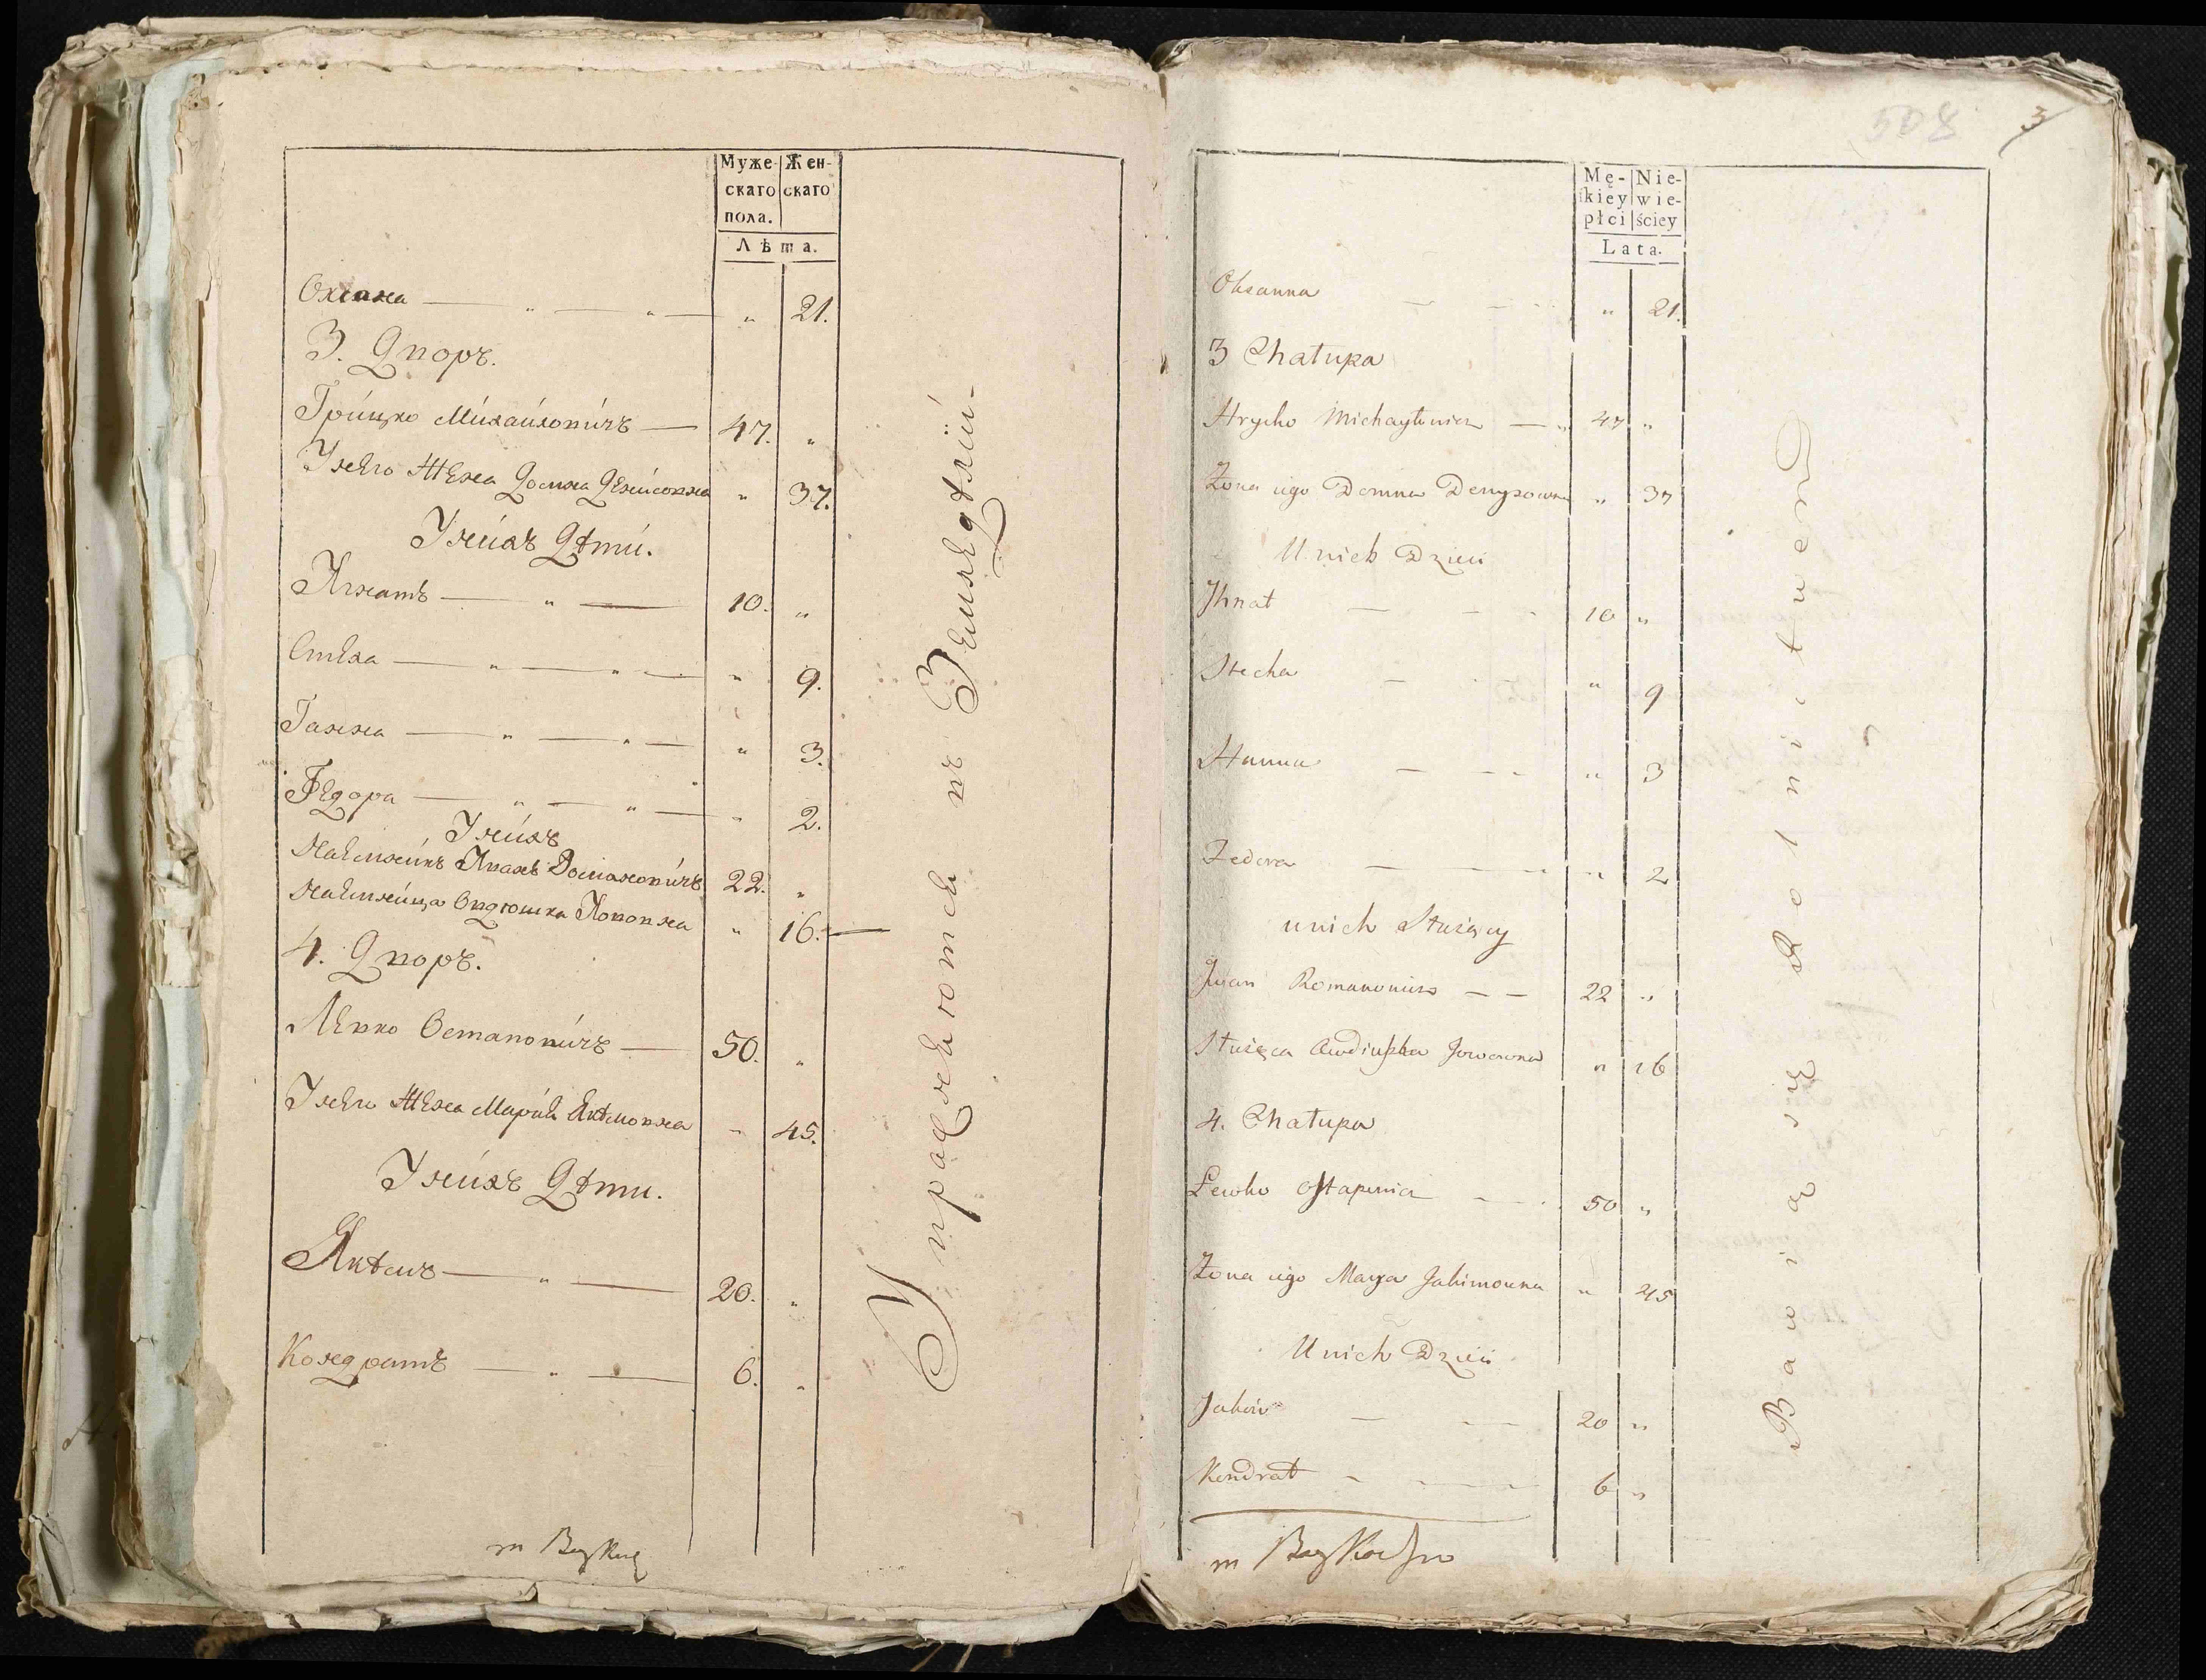 Муже-
скаго
пола.
Жен-
скаго
Лѣта.
Оксана 21.
3. Дворъ.
Грицко Михайловичъ 47.
У него Жена Домна Денисовна 37.
У нихъ Дѣти.
Игнатъ 10.
Стеха 9.
Ганна 3.
Федора 2.
У нихъ
Наемникъ Иванъ Романовичъ 22.
Наемница Овдюшка Иововна 16.
4. Дворъ.
Левко Остаповичъ 50.
У него Жена Марія Якѣмовна 45.
У нихъ Дѣти.
Якѣмъ 20.
Кондратъ 6.
Упражняются въ Земледѣліи
508 3
Mę-
skiey
płci
Nie-
wie-
ściey
Lata.
Oksanna 21.
3 Chałupa
Hrycko Michayłowicz 47
Żona iego Domna Denysowna 37
U nich Dzieci
Ihnat 10
Stecha 9
Hanna 3
Fedora 2
u nich Służący
Jwan Romanowicz 22
Służąca Awdiuszka Jowowna 16
4. Chałupa
Lewko Ostapowicz 50
Żona iego Marya Jakimowna 45
U nich Dzieci
Jakim 20
Kondrat 6
Bawią się Rolnictwem